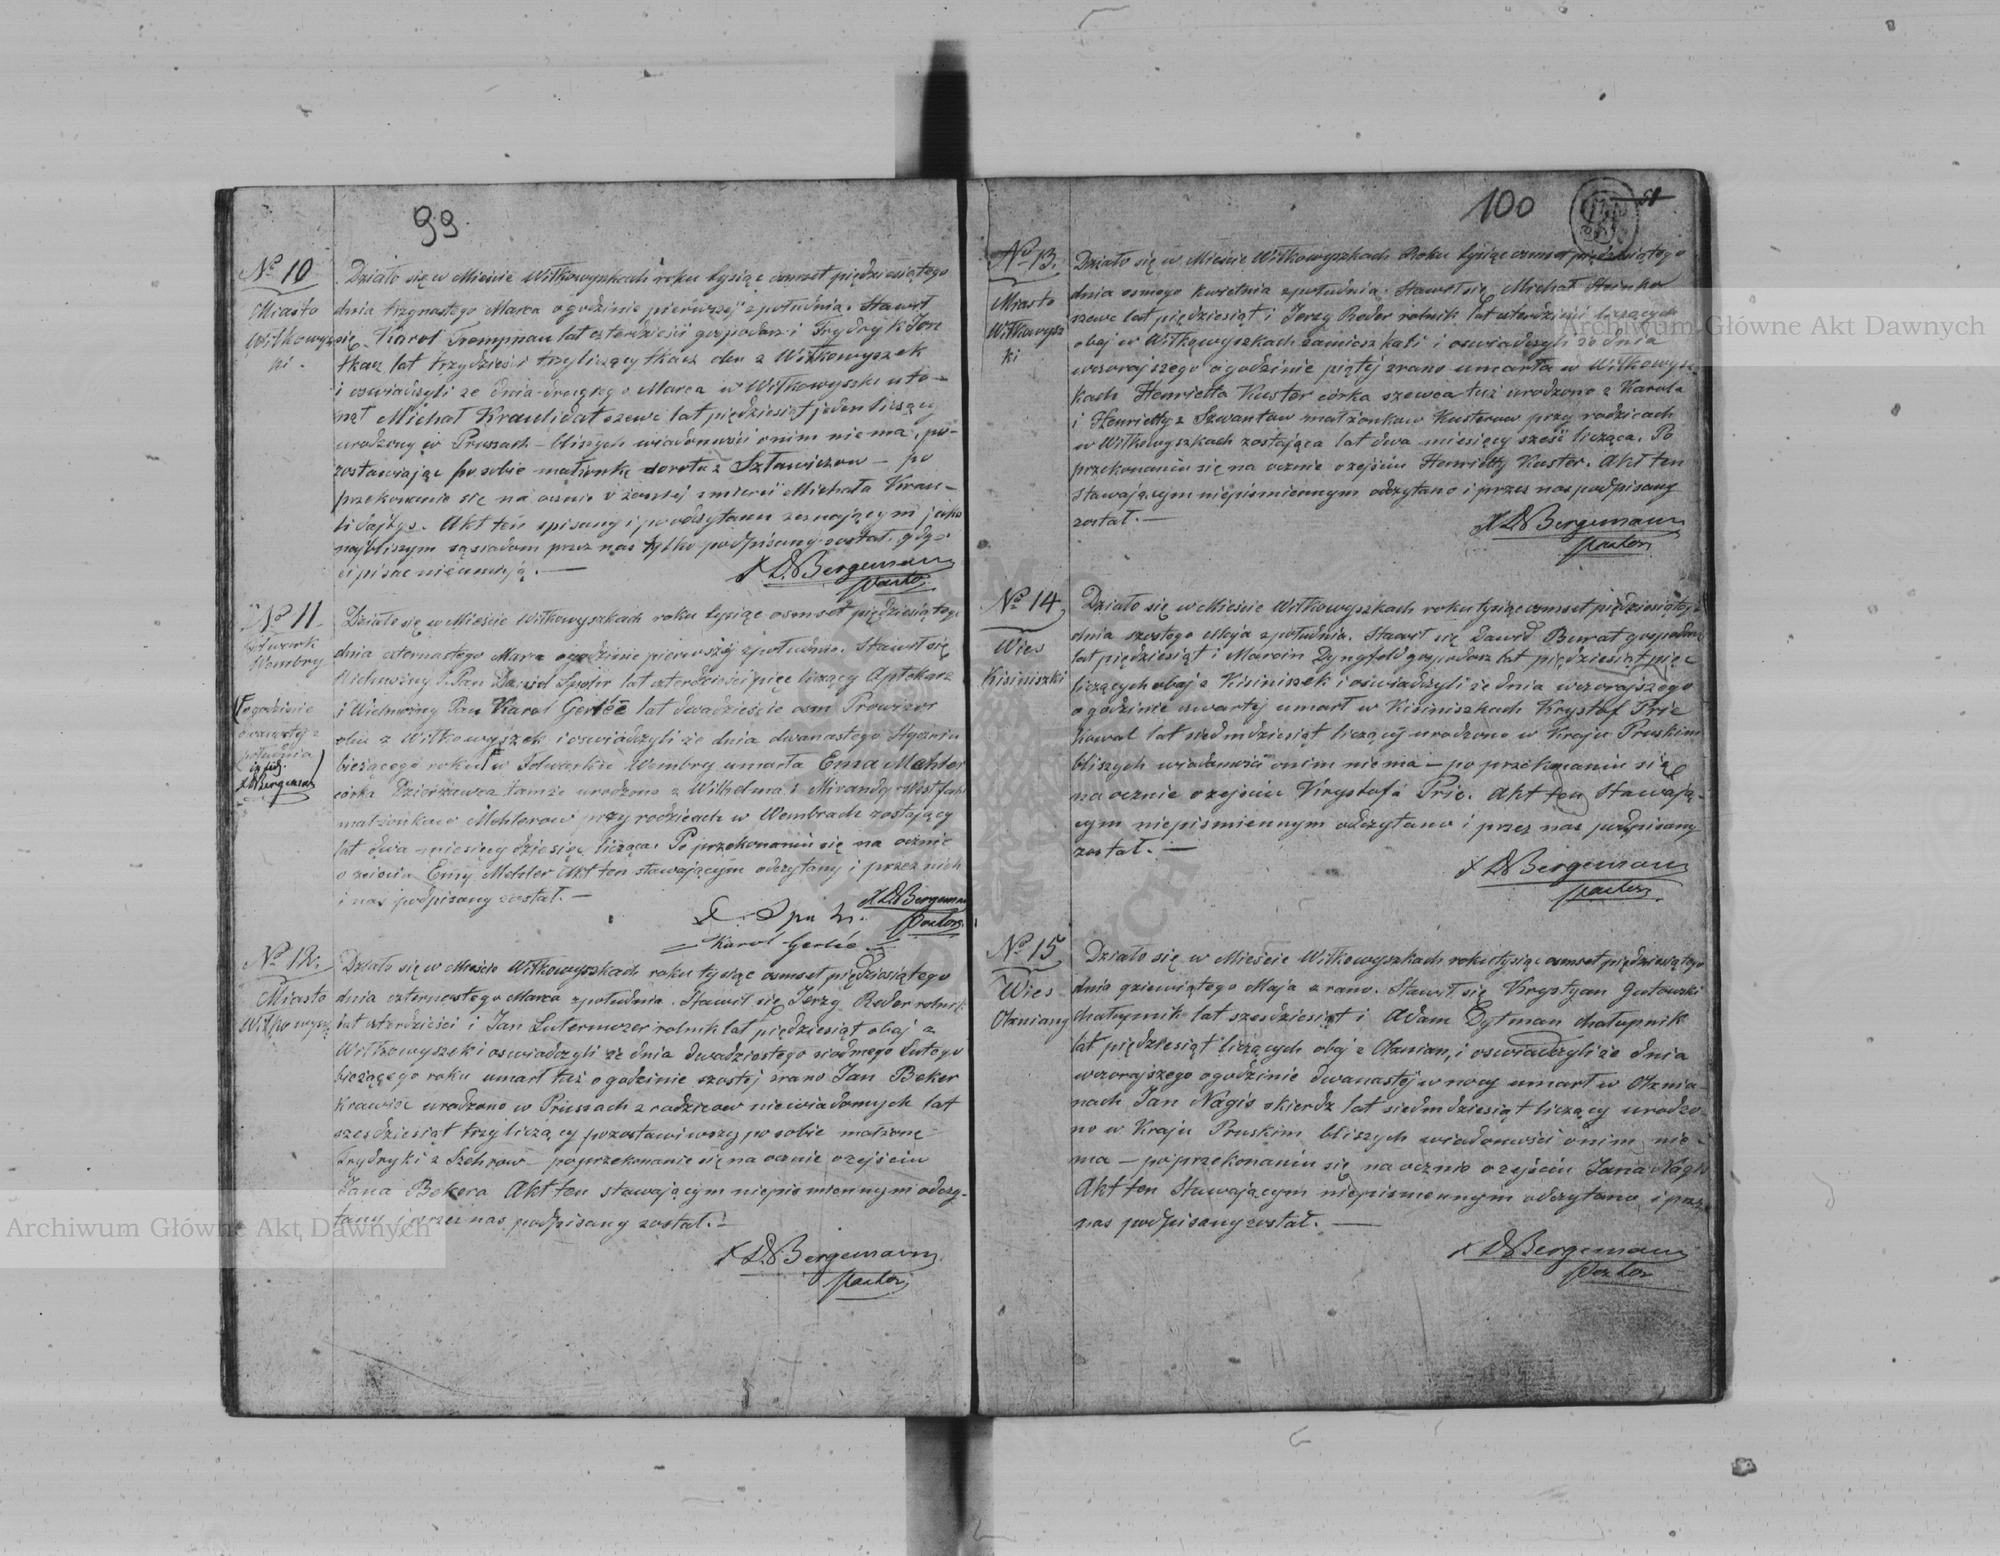 99
No 10
Miasto
Wiłkowysz
ki.
Działo się w Mieście Wiłkowyszkach roku tysiąc osmset pięździesiątego
dnia trzynastego Marca o godzinie pierwszéj z południa. Stawił
się Karol Trempnau lat czterdzieści gospodarz i Frydryk Jon
tkacz lat trzydzieści trzy liczący tkacz oba z Wiłkowyszek
i oswiadczyli ze dnia drugiego Marca w Wiłkowyszki uto-
nął Michał Kraulidat szewc lat pięździesiąt jeden liczący
urodzony w Prussach – bliszych wiadomości o nim nie ma, po-
zostawiając po sobie małżonkę dorota z Szławiczow – po
przekonanie się na ocznie o zeszłej smierci Michała Krau-
lidajtys. Akt ten spisany i przeczytany zeznającym jako
najbliszym sąsiadom przez nas tylko podpisany został. gdy
ci pisac nie umieją. —
X D. Bergemann
Pastor
No 11
Folwark
Wembry
Działo się w Mieście Wiłkowyszkach roku tysiąc osmset pięździesiątego
dnia czternastego Marca o godzinie pierwszéj z południa. Stawił się
Wielmożny Pan Daniel Speter lat czterdzieści pięć liczący Aptekarz
i Wielmożny Pan Karol Gerlée lat dwadzieście osm Prowizor
oba z Wiłkowyszek i oswiadczyli że dnia dwunastego Stycznia
bieżącego roku w Folwarku Wembry umarła Ema Mehler
corka Dzierżawca tamże urodzona z Wilhelma i Mirandy Westfal
małżonkow Mehlerow przy rodzicach w Wembrach zostający
lat dwa miesięcy dziesięc licząca. Po przekonaniu się na ocznie
o zeiściu Emy Mehler Akt ten stawającym odczytany i przez nich
i nas podpisany został. —
o godzinie
czwartej z
południa
X D Bergemann
X D. Bergemann
Pastor
Karol Gerlée
No 12.
Miasto
Wiłkowysz
Działo się w Mieście Wiłkowyszkach roku tysiąc osmset pięździesiątego
dnia czternastego Marca z południa. Stawił się Jerzy Reder rolnik
lat czterdzieści i Jan Lutermozer rolnik lat pięździesiąt obaj z
Wiłkowyszek i oswiadczyli że dnia dwadziestego siodmego Lutego
bieżącego roku umarł tuż o godzinie szostej zrano Jan Beker
krawiec urodzono w Prussach z rodzicow niewiadomych lat
szesdziesiąt trzy liczący pozostawiwszy po sobie małżone
Frydryki z Szehrow – po przekonanie się na ocznie o zejściu
Jana Bekera Akt ten stawającym niepismiennym odczy-
tany i przez nas podpisany został. —
X D. Bergemann
Pastor
100
No 13.
Miasto
Wiłkowysz
ki
Działo się w Mieście Wiłkowyszkach Roku tysiąc osmset pięździesiątego
dnia osmego Kwietnia z południa. Stawił się Michał Heinka
szewc lat pięździesiąt i Jerzy Reder rolnik lat czterdzieści liczących
obaj w Wiłkowyszkach zamieszkali i oswiadczyli że dnia
wczorajszego o godzinie piątéj zrano umarła w Wiłkowysz-
kach Henrietta Kuster córka szewca tuż urodzona z Karola
i Henrietty z Szwantow małżonkow Kusterow przy rodzicach
w Wiłkowyszkach zostająca lat dwa miesięcy sześć licząca. Po
przekonaniu się na ocznie o zejściu Henrietty Kuster. Akt ten
stawającym niepismiennym odczytano i przez nas podpisany
został. —
X D Bergemann
Pastor
No 14
Wies
Kisiniszki
Działo się w Mieście Wiłkowyszkach roku tysiąc osmset pięździesiątego
dnia szostego Maja z południa. Stawił się Dawid Burat gospodarz
lat pięździesiąt i Marcin Dyngfeld gospodarz lat pięździesiąt pięć
liczących obaj z Kisiniszek i oswiadczyli że dnia wczorajszego
o godzinie czwartej umarł w Kisiniszkach Krystof Pric
kowal lat siedmdziesiąt liczący urodzono w Kraju Pruskim
bliszych wiadomości o nim nie ma – po przekonaniu się
na ocznie o zejściu Krystofa Pric. Akt ten Stawają-
cym niepismiennym odczytano i przez nas podpisany
został. —
X D Bergemann
Pastor
No 15
Wies
Ożniany
Działo się w Mieście Wiłkowyszkach roku tysiąc osmset pięździesiątego
dnia dziewiątego Maja zrano. Stawił się Krystyan Gutowski
chałupnik lat szesdziesiąt i Adam Dytman chałupnik
lat pięździesiąt liczących obaj z Ożnian, i oswiadczyli że dnia
wczorajszego o godzinie dwanastej w nocy umarł w Ożnia-
nach Jan Nagis skierdz lat siedmdziesiąt liczący urodzo-
no w Kraju Pruskim bliszych wiadomości o nim nie-
ma – po przekonaniu się na ocznie o zejściu Jana Nagis
Akt ten Stawającym niepismennym odczytano i przez
nas podpisany został. —
X D Bergemann
Pastor
Archiwum Główne Akt Dawnych
Archiwum Główne Akt Dawnych